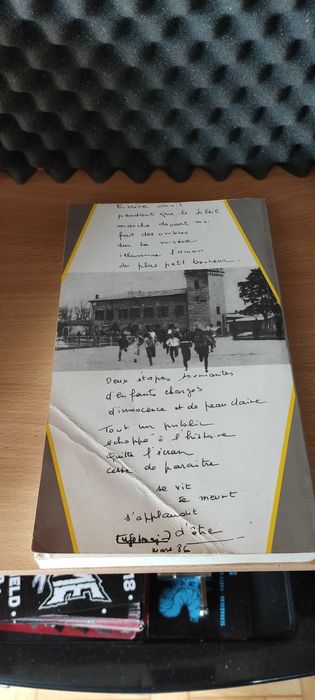 pendant que le soleil
marche devant
fait des ombres
sur la misère
illumine l'amour
du plus petit bonheur
Deux étapes souriantes
d'enfants chargés
d'innocence et de peau claire
Tout un public
échappé à l'histoire
quitte l'écran
cesse de paraître
se vit
se meurt
s'applaudit
d'être
mars 86